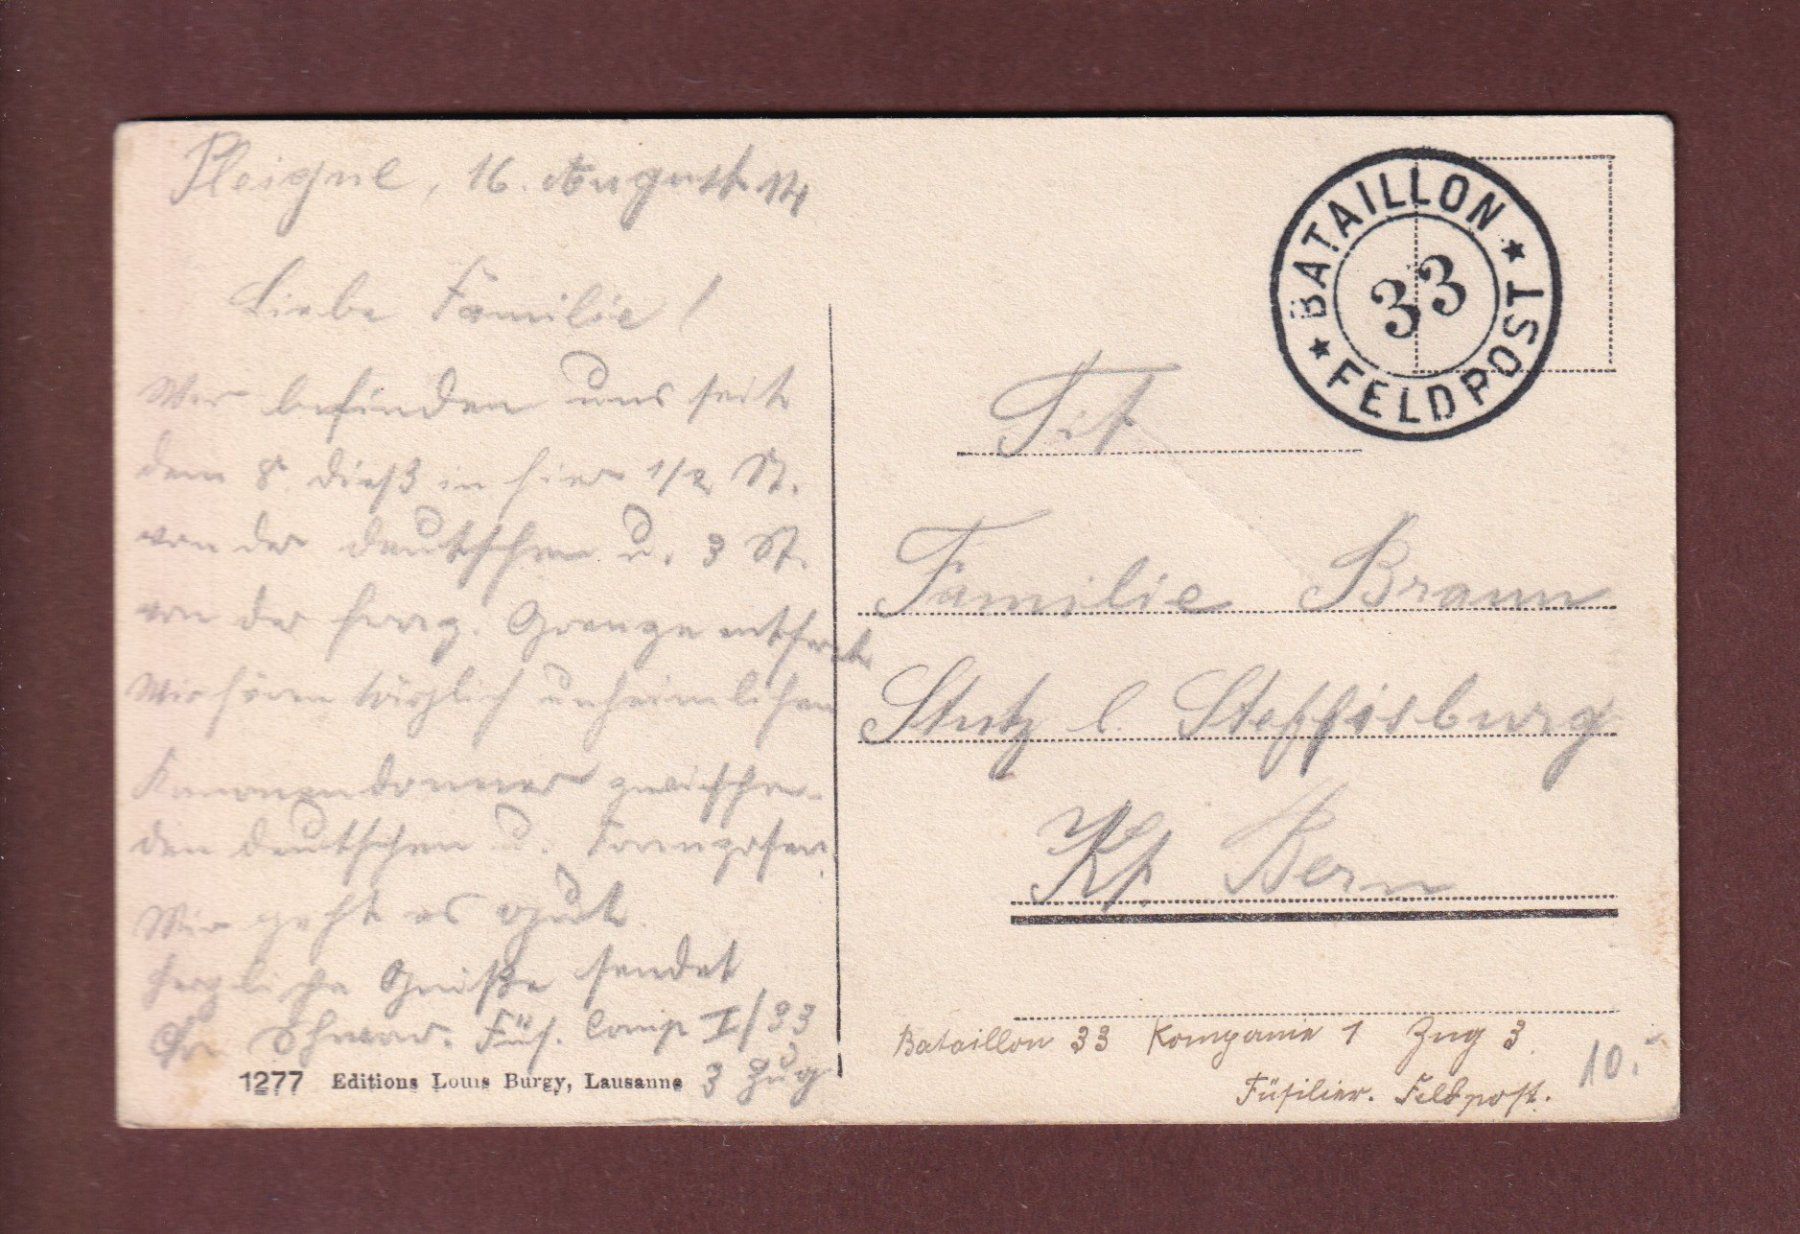 Pleigne, 16. August 14
Liebe Familie!
Wir befinden uns seit
dem 8. dieß in hier 1/2 St.
von der deutschen u. 3 St.
von der franz. Grenze entfernt
Wir hören täglich unheimlichen
Kanonendonner zwischen
den deutschen u. Franzosen.
Mir geht es gut.
Herzliche Grüße sendet
Füs. Comp I/33
3 Zug
1277 Editions Louis Burgy, Lausanne
BATAILLON
33
FELDPOST
Tit.
Familie Braun
Stutz b. Steffisburg
Kt. Bern
Bataillon 33 Kompanie 1 Zug 3.
Füsilier. Feldpost.
10.-